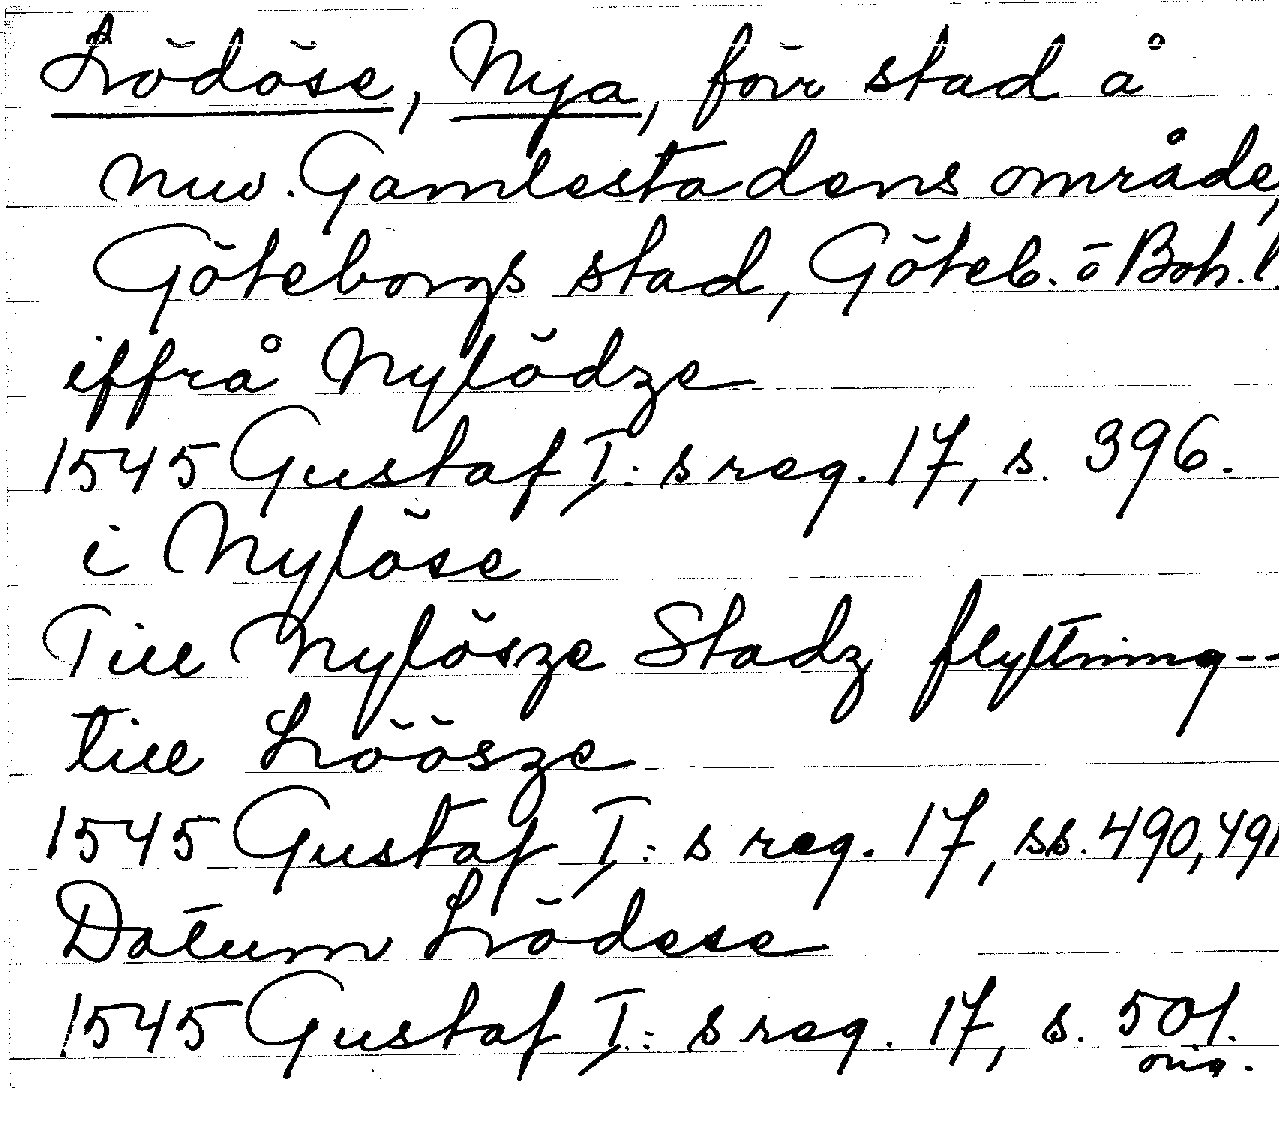 Lödöse, Nya, förr stad å
nuv. Gamlestadens område,
Göteborgs stad, Göteb. o Boh. l.
iffrå Nylödze
1545 Gustaf I:s reg. 17, s. 396.
i Nylöse
Till Nylösze Stadz flyttning--
till Löösze
1545 Gustaf I:s reg. 17, ss. 490, 491
Datum Lödese
1545 Gustaf I:s reg. 17, s. 501.
orig.